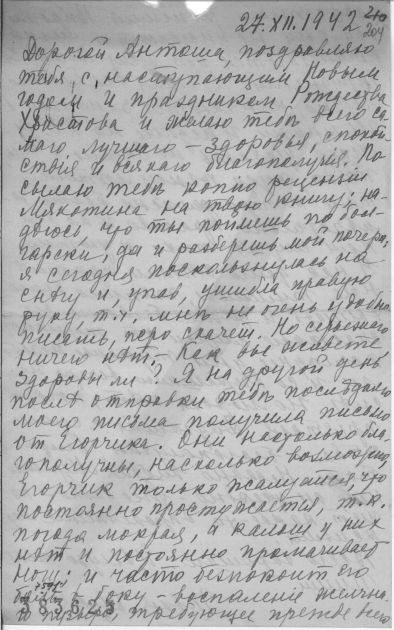 27.XII.1942
204
Дорогой Антоша, поздравляю
тебя с наступающим Новым
годом и праздником Рождества
Христова и желаю тебе всего са-
маго лучшаго – здоровья, спокой
ствія и всякаго благополучія. По
сылаю тебѣ копію рецензіи
Мякотина на твою книгу; на-
дѣюсь, что ты поймешь по бол-
гарски, да и разберешь мой почерк,
я сегодня поскользнулась на
снѣгу и, упав, ушибла правую
руку, т.ч. мнѣ не очень удобно
писать, перо скачет. Но серьезнаго
ничего нѣт. – Как вы живете
здоровы ли? Я на другой день
послѣ отправки тебѣ послѣдняго
моего письма получила письмо
от Егорчика. Они настолько бла-
гополучны, насколько возможно,
Егорчик только жалуется что
постоянно простужается, т.к.
погода мокрая, а калош у них
нѣт и постоянно промачивает
ноги; и часто безпокоит его
боль в боку – воспаленіе желчна
го пузыря, требующее прежде всего
383623